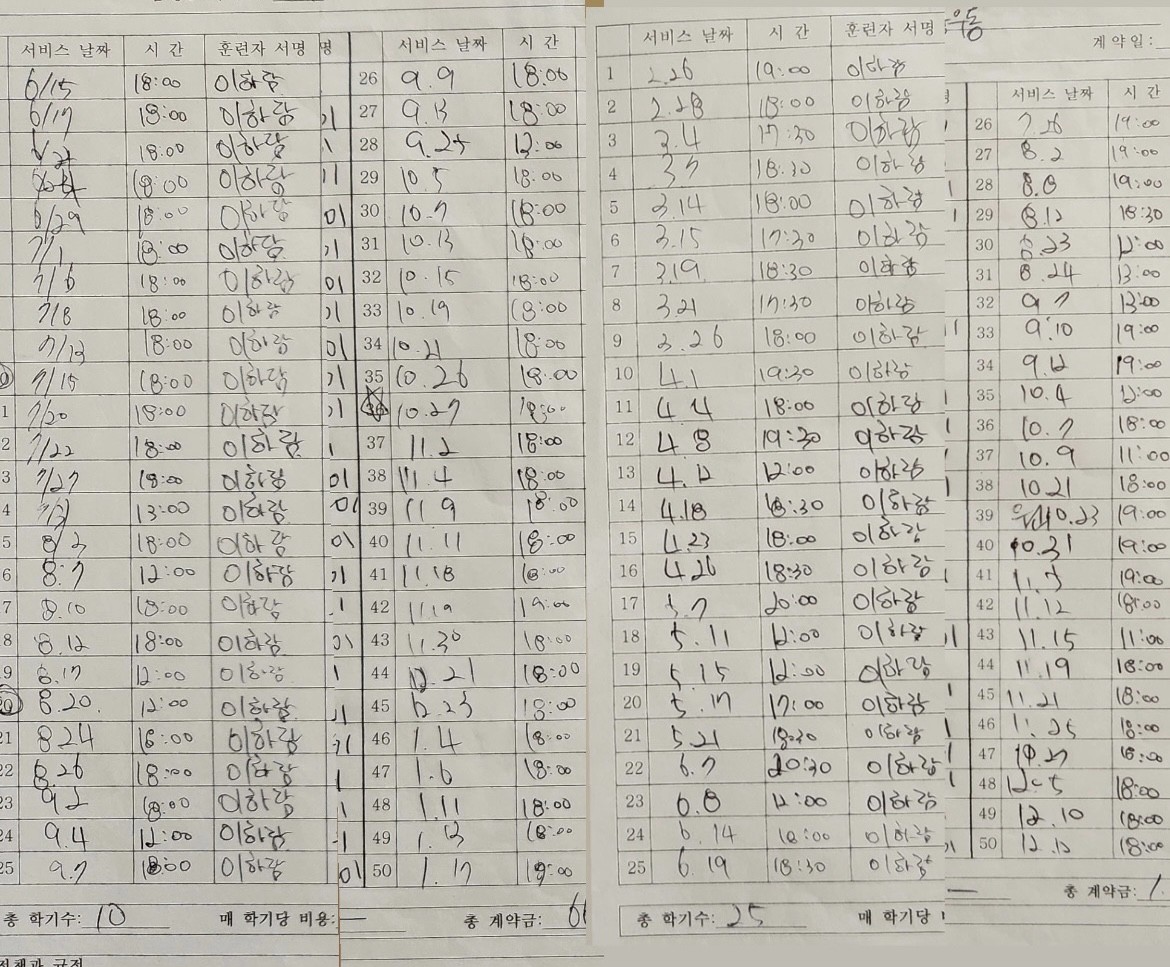 서비스 날짜 시 간 훈련자 서명
6/15 18:00 이하람
6/17 18:00 이하람
18:00 이하람
18:00 이하람
6/29 18:00 이하람
7/1 18:00 이하람
7/6 18:00 이하람
7/8 18:00 이하람
7/13 18:00 이하람
7/15 18:00 이하람
1 7/20 18:00 이하람
2 7/22 18:00 이하람
3 7/27 18:00 이하람
4 13:00 이하람
5 8/3 18:00 이하람
6 8.7 12:00 이하람
7 8.10 18:00 이하람
8 8.12 18:00 이하람
9 8.17 12:00 이하람
20 8.20. 12:00 이하람
21 8.24 18:00 이하람
22 8.26 18:00 이하람
23 9.2 18:00 이하람
24 9.4 12:00 이하람
25 9.7 18:00 이하람
총 학기수: 10 매 학기당 비용:
명 서비스 날짜 시 간
26 9.9 18:00
27 9.13 18:00
28 9.25 12:00
29 10.5 18:00
30 10.7 18:00
31 10.13 18:00
32 10.15 18:00
33 10.19 18:00
34 10.21 18:00
35 10.26 18:00
36 10.27 18:00
37 11.2 18:00
38 11.4 18:00
39 11.9 18:00
40 11.11 18:00
41 11.18 18:00
42 11.19 19:00
43 11.30 18:00
44 12.21 18:00
45 12.23 18:00
46 1.4 18:00
47 1.6 18:00
48 1.11 18:00
49 1.13 18:00
50 1.17 19:00
총 계약금:
서비스 날짜 시 간 훈련자 서명
1 2.26 19:00 이하람
2 2.28 18:00 이하람
3 3.4 17:30 이하람
4 3.7 18:30 이하람
5 3.14 18:00 이하람
6 3.15 17:30 이하람
7 3.19. 18:30 이하람
8 3.21 17:30 이하람
9 3.26 18:00 이하람
10 4.1 19:30 이하람
11 4.4 18:00 이하람
12 4.8 19:30 이하람
13 4.12 12:00 이하람
14 4.18 18:30 이하람
15 4.23 18:00 이하람
16 4.26 18:30 이하람
17 5.7 20:00 이하람
18 5.11 12:00 이하람
19 5.15 12:00 이하람
20 5.17 17:00 이하람
21 5.21 18:30 이하람
22 6.7 20:30 이하람
23 6.8 12:00 이하람
24 6.14 18:00 이하람
25 6.19 18:30 이하람
총 학기수: 25 매 학기당
계약일:
서비스 날짜 시 간
26 7.26 19:00
27 8.2 19:00
28 8.8 19:00
29 8.12 18:30
30 8.23 12:00
31 8.24 13:00
32 9.7 13:00
33 9.10 19:00
34 9.12 19:00
35 10.4 12:00
36 10.7 18:00
37 10.9 11:00
38 10.21 18:00
39 10.23 19:00
40 10.31 19:00
41 11.5 19:00
42 11.12 18:00
43 11.15 11:00
44 11.19 18:00
45 11.21 18:00
46 11.25 18:00
47 11.27 18:00
48 12.5 18:00
49 12.10 18:00
50 12.12 18:00
총 계약금: